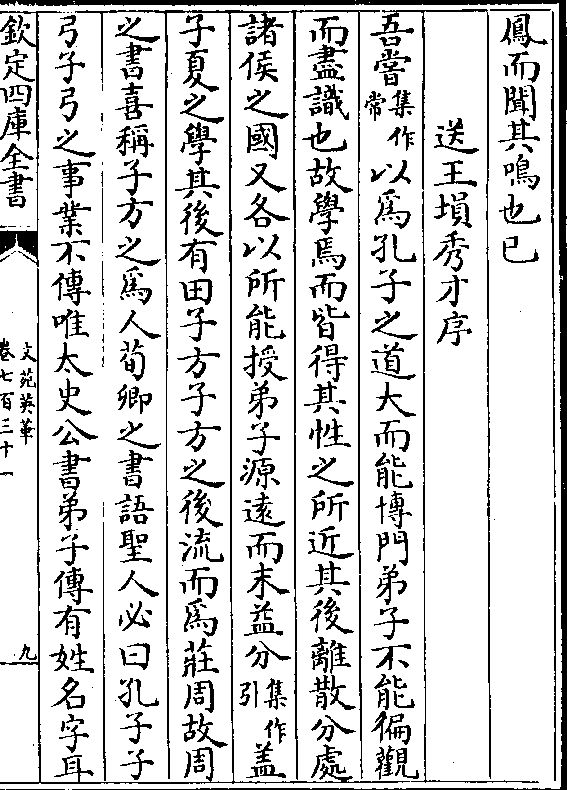 鳳而聞其鳴也已
送王塤秀才序
吾嘗集作常以爲孔子之道大而能博門弟子不能徧觀
而盡識也故學焉而皆得其性之所近其後離散分處
諸侯之國又各以所能授弟子源遠而末益分集作引盖
子夏之學其後有田子方子方之後流而爲莊周故周
之書喜稱子方之爲人荀卿之書語聖人必曰孔子子
弓子弓之事業不傳唯太史公書弟子傳有姓名字耳
欽定四庫全書
文苑英華
卷七百三十一
九